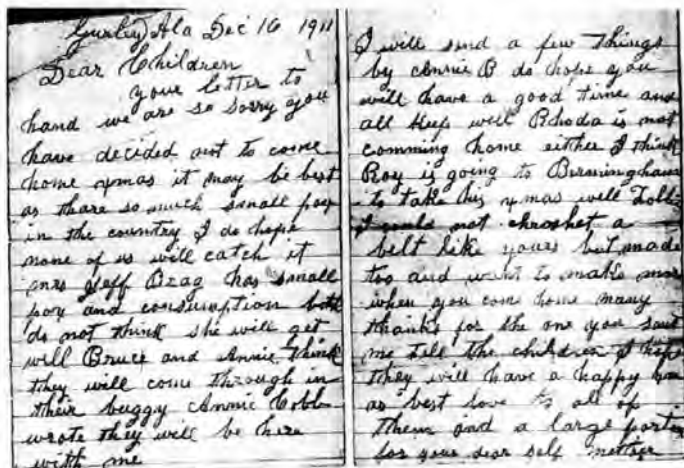 Gurley Ala Dec 16 1911
Dear Children
your letter to
hand we are so sorry you
have decided not to come
home xmas it may be best
as thare so much small pox
in the country I do hope
none of us will catch it
mrs Jeff has small
pox and consumption both
do not think she will get
well Bruce and Annie think
they will come through in
their buggy Annie
wrote they will be here
with me
I will send a few things
by Annie B do hope you
will have a good time and
all keep well Rhoda is not
comming home either I think
Roy is going to Birmingham
to take his xmas well
I could not chroshet a
belt like yours but made
too and want to make more
when you come home many
thanks for the one you sent
me tell the children I hope
they will have a happy
as best love to all of
them and a large
for your dear self